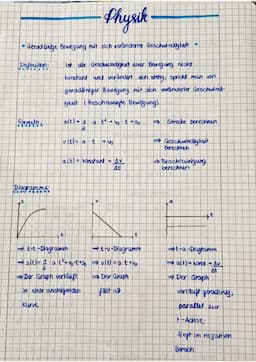 Physik
• Geradlinige Bewegung mit sich verändernder Geschwindigkeit •
Definition: Ist die Geschwindigkeit einer Bewegung nicht
konstant und verändert sich stetig, spricht man von
geradliniger Bewegung mit sich verändernder Geschwindig-
keit (Beschleunigte Bewegung).
Formeln: s(t) = 1/2 · a · t² + v₀ · t + s₀ ⇒ Strecke berechnen
v(t) = a · t + v₀ ⇒ Geschwindigkeit
berechnen
a(t) = konstant = Δv/Δt ⇒ Beschleunigung
berechnen
Diagramme:
s t
v t
a t
→ t-s-Diagramm → t-v-Diagramm → t-a-Diagramm
→ s(t) = 1/2 · a · t² + v₀ · t + s₀ → v(t) = a · t + v₀ → a(t) = konst. = Δv/Δt
→ Der Graph verläuft → Der Graph → Der Graph
in einer ansteigenden fällt ab verläuft geradlinig,
Kurve. parallel zur
t-Achse,
liegt im negativen
Bereich